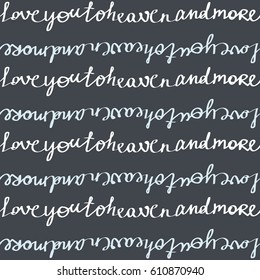 Love you to heaven and more
Love you to heaven and more
Love you to heaven and more
Love you to heaven and more
Love you to heaven and more
Love you to heaven and more
Love you to heaven and more
Love you to heaven and more
shutterstock.com · 610870940